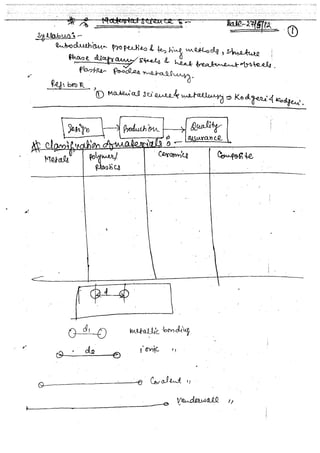 * Material science :-
Date - 27/5/12
①
Syllabus:-
Introduction properties & testing methods, structure
Phase diagrams, steels & heat treatment of steels.
Plaster Powder metallurgy.
Ref: book
① Material science & metallurgy → Kodgeri & Kodgeri.
Design → Production → Quality assurance
* Classification of materials :-
Metals | Polymer/ Plastics | Ceramics | Composite
d
d1 metallic bonding
d2 ionic "
Covalent "
Vanderwall "